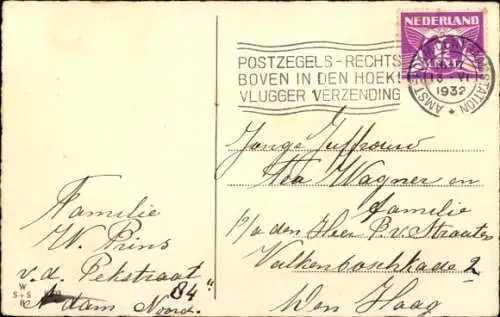 NEDERLAND
POSTZEGELS - RECHTS
BOVEN IN DEN HOEK!
VLUGGER VERZENDING
AMSTERDAM STATION
13 VI
1932
Jonge Juffrouw
Wagner en
familie
P/a den Heer P. v. Straaten
Valkenboschkade 2
Den Haag
Familie
W. Prins
v. d. Pekstraat
84"
A'dam Noord.
W
S+S
B